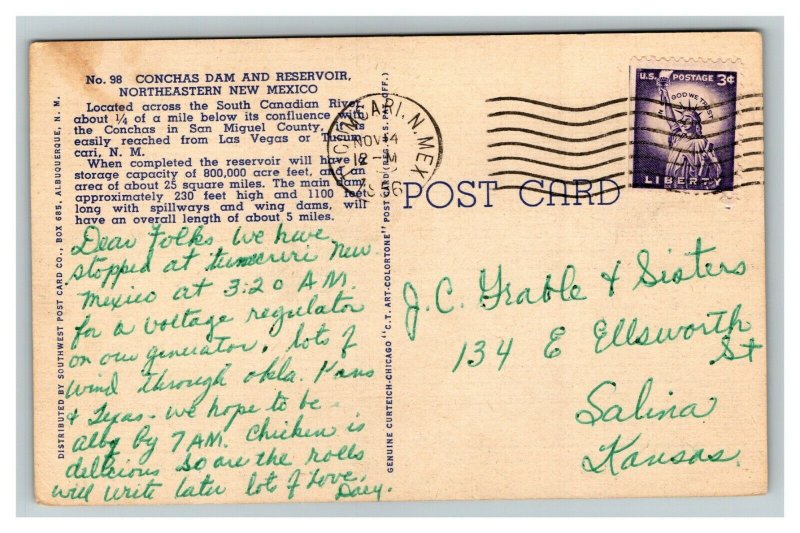 No. 98 CONCHAS DAM AND RESERVOIR,
NORTHEASTERN NEW MEXICO
Located across the South Canadian River
about ¼ of a mile below its confluence with
the Conchas in San Miguel County, it is
easily reached from Las Vegas or Tucum-
cari, N. M.
When completed the reservoir will have a
storage capacity of 800,000 acre feet, and an
area of about 25 square miles. The main dam,
approximately 230 feet high and 1100 feet
long with spillways and wing dams, will
have an overall length of about 5 miles.
DISTRIBUTED BY SOUTHWEST POST CARD CO., BOX 685, ALBUQUERQUE, N. M.
Dear Folks We have
stopped at New
Mexico at 3:20 A.M.
for a voltage regulator
on our generator. lots of
wind through Okla. Kans
& Texas. We hope to be
albq by 7 AM. Chicken is
delicious so are the rolls
will write later lots of Love.
GENUINE CURTEICH-CHICAGO "C. T. ART-COLORTONE" POST CARD (REG. U. S. PAT. OFF.)
TUCUMCARI, N. MEX.
NOV 14
12 - M
1956
POST CARD
U.S. POSTAGE 3¢
IN GOD WE TRUST
LIBERTY
J.C. Grable & Sisters
134 E Ellsworth
St
Salina
Kansas.